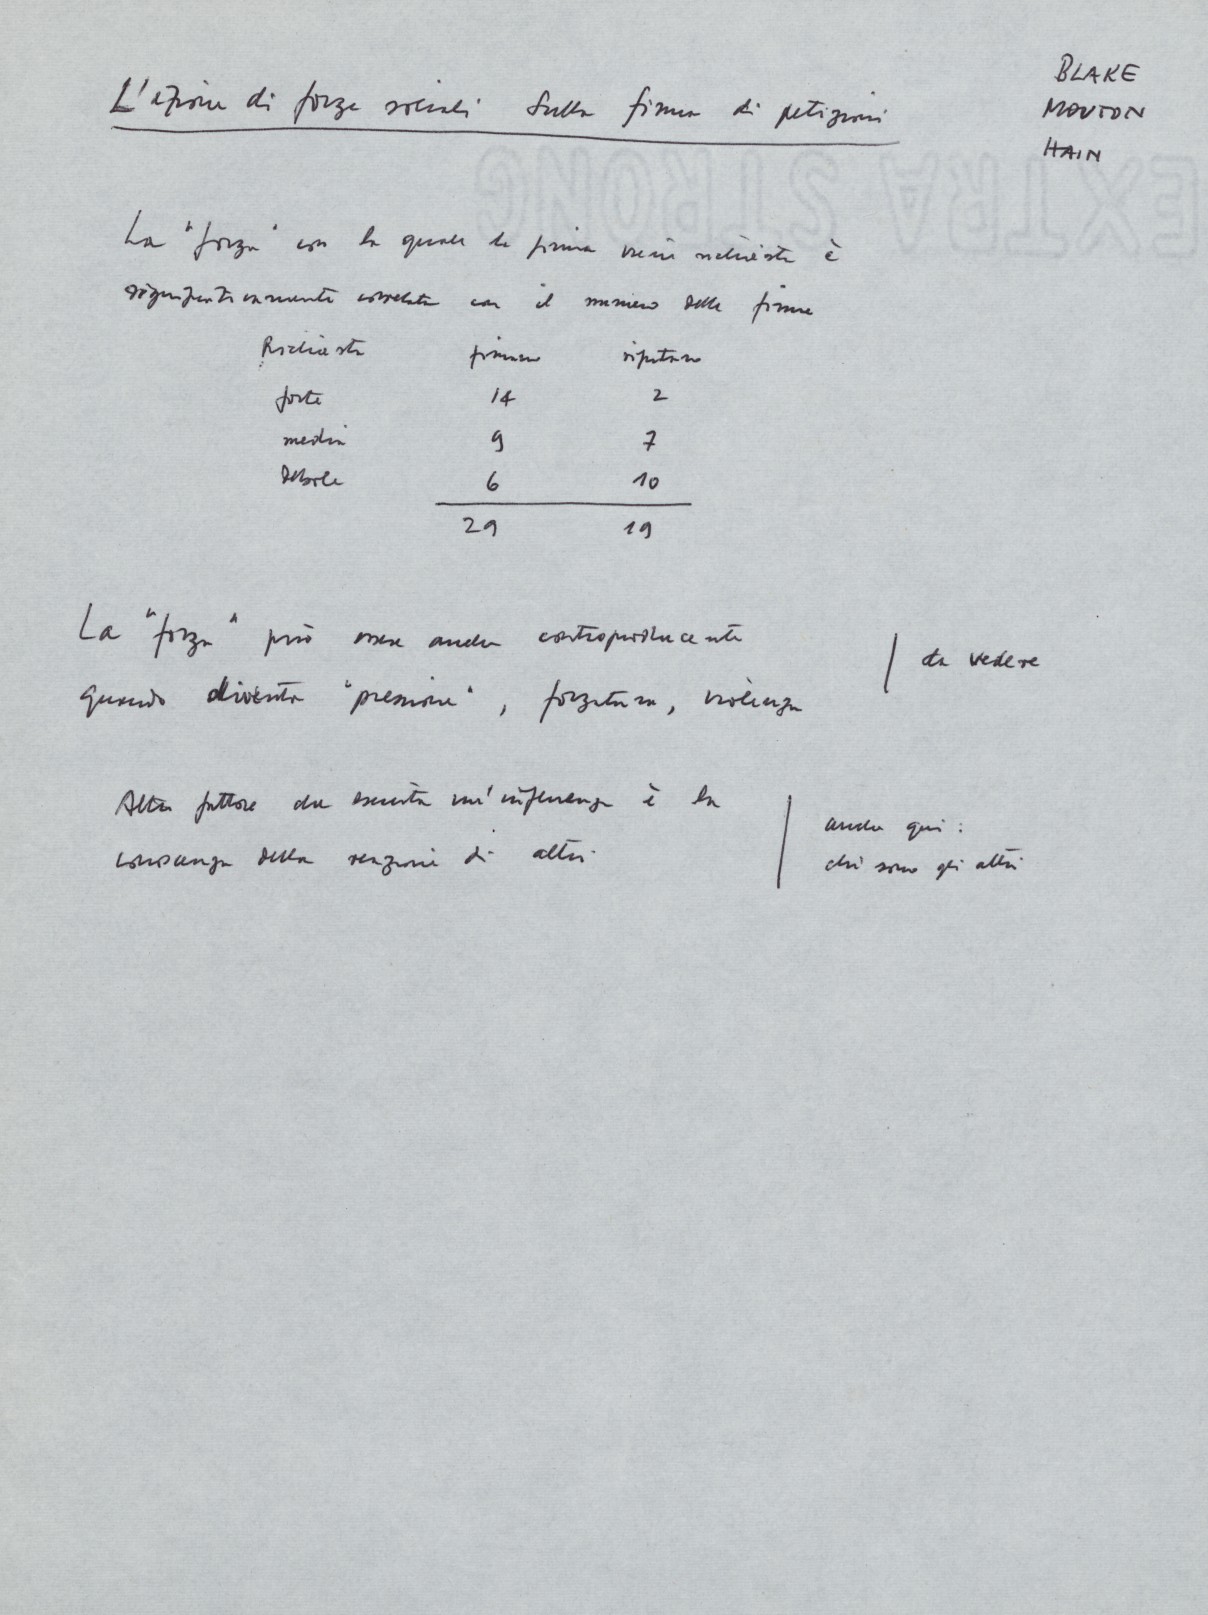 BLAKE
MOUTON
HAIN
L'azione di forze sociali sulla firma di petizioni
EXTRA STRONG
La "forza" con la quale la firma viene richiesta è
significativamente correlata con il numero delle firme
Richiesta firmano rifiutano
forte 14 2
media 9 7
debole 6 10
29 19
La "forza" può essere anche controproducente
quando diventa "pressione", forzatura, violenza
da vedere
Altro fattore che esercita un'influenza è la
conoscenza della reazione di altri
anche qui:
chi sono gli altri